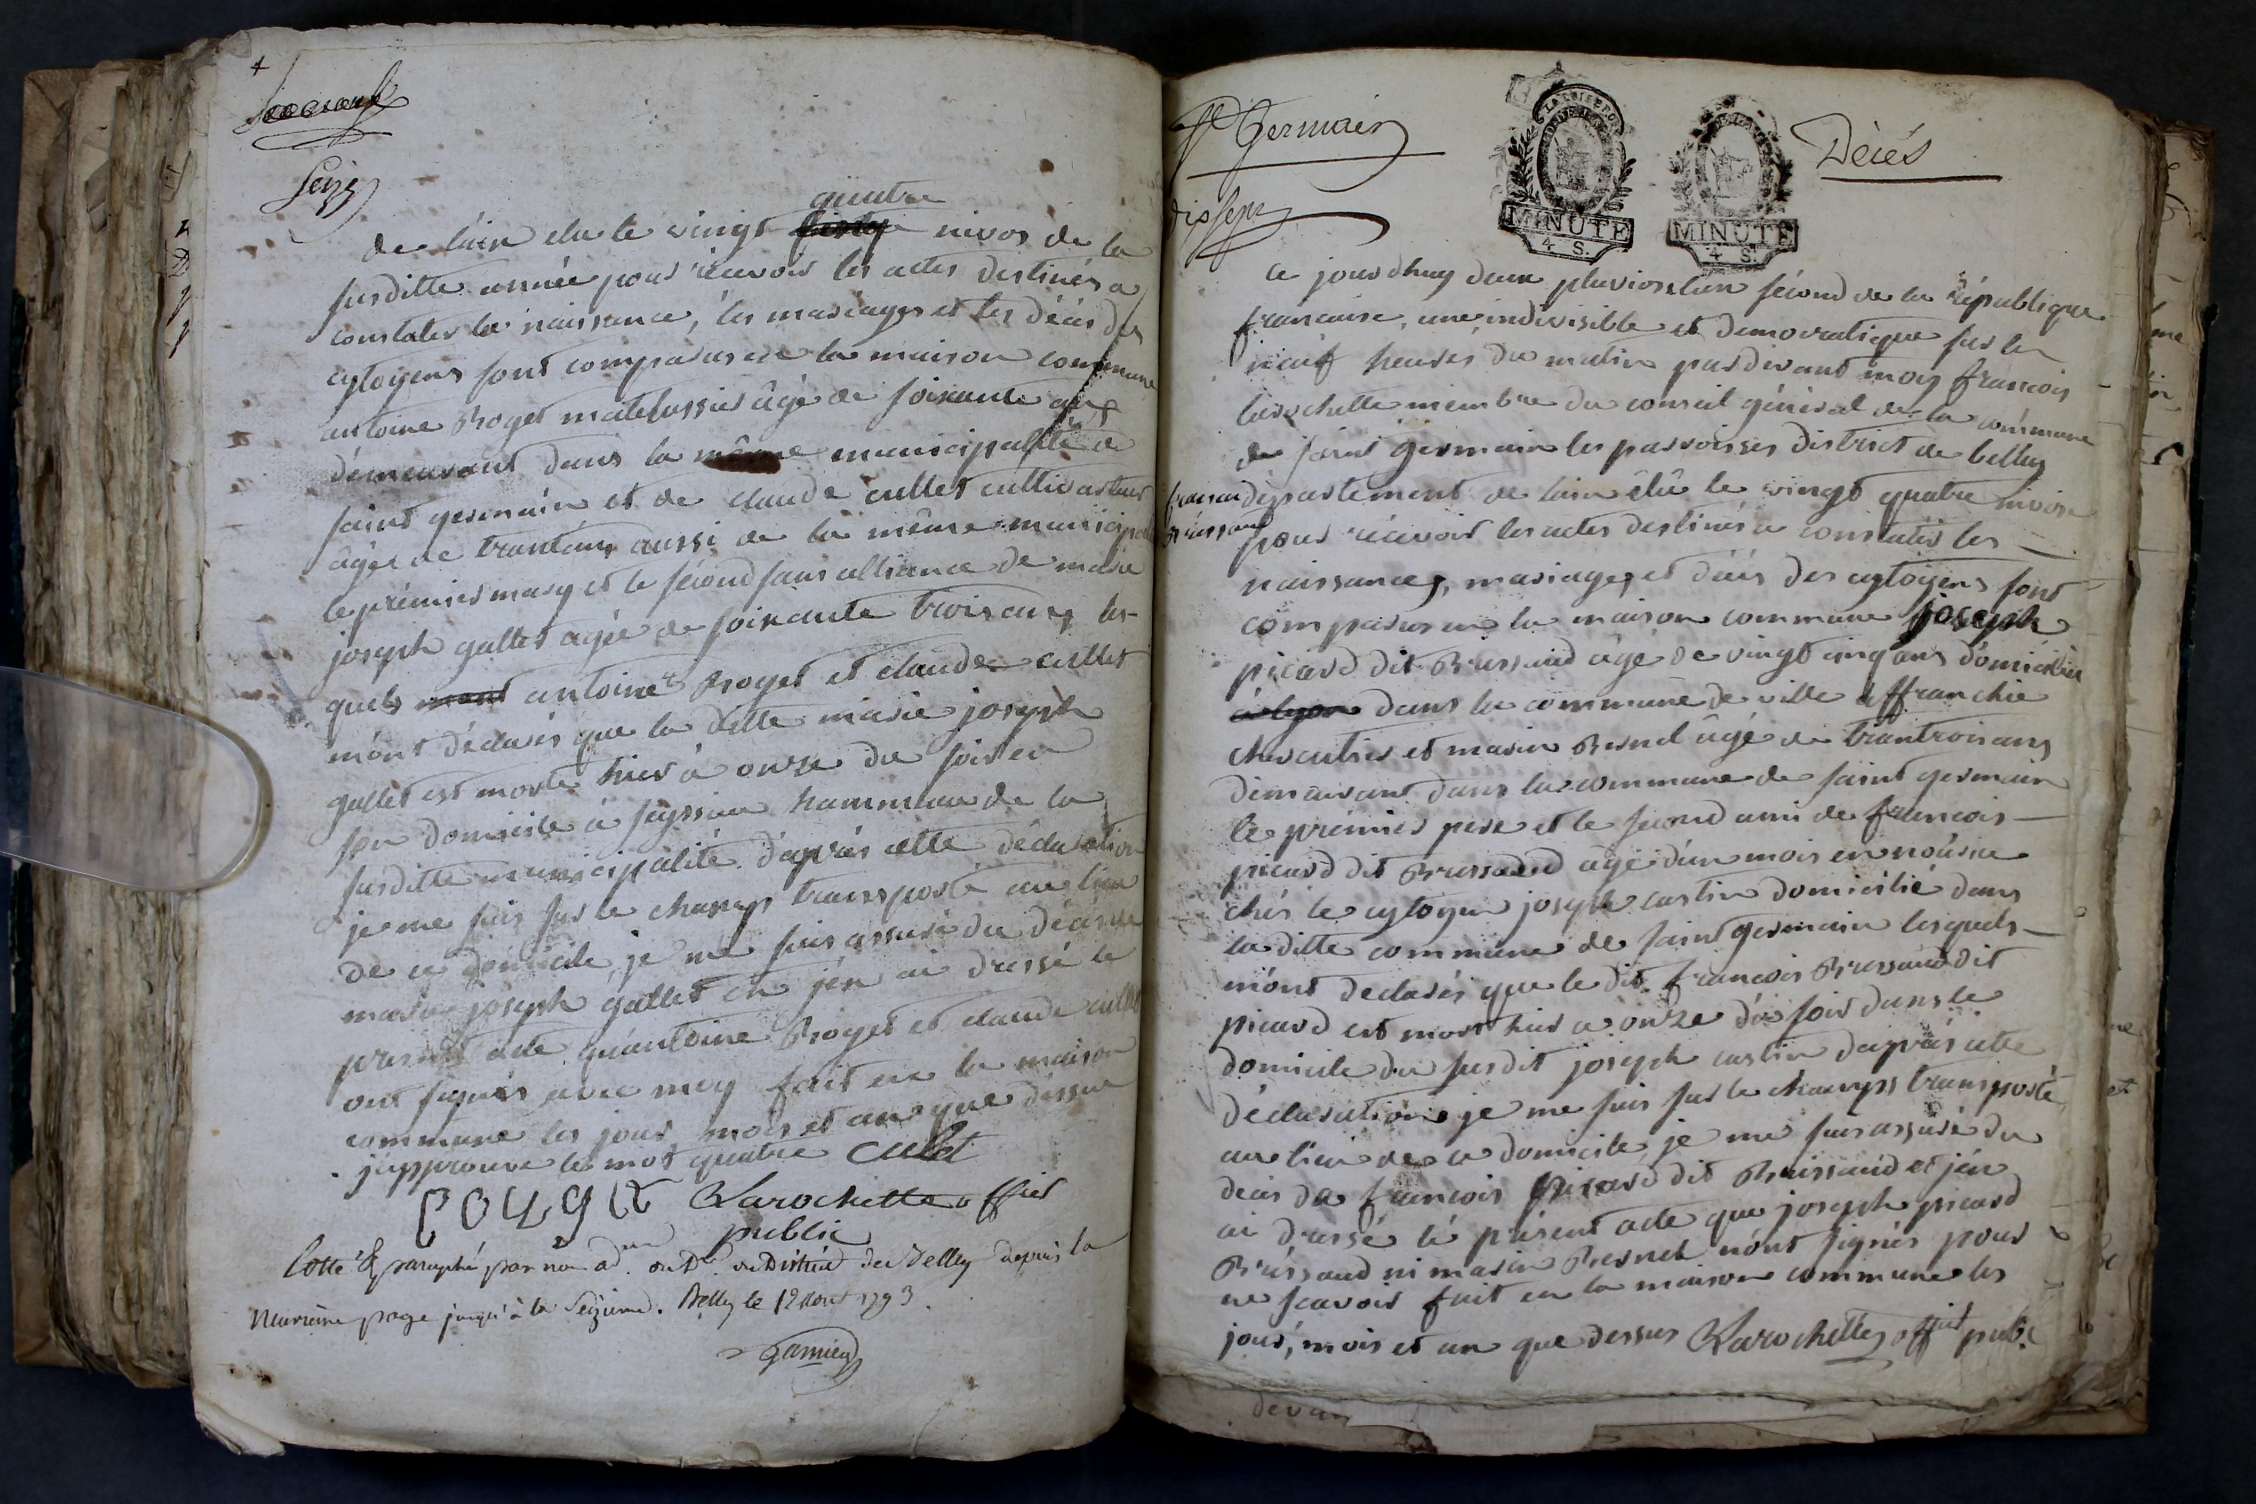 4
Seize
quatre
de lâin elu le vingt nivos de la
susditte année pour récevoir les actes destinés a
constater la naissance, les mariages et les décés des
cytoyens sont comparus en la maison commune
antoine Roget matelassier âgé de soixante ans
démeurant dans la même municipalité de
saint germain et de claude cullet cultivateur
âgé de trantans aussi de la même municipalité
le prémier mary et le sécond sans alliance de marie
joseph gallet agée de soixante trois ans les-
quels mont antoine Roget et claude cullet
mónt déclarés que la ditte marie joseph
gallet est morte hier à onze du soir en
son domicile à seyssieu hammeau de la
susditte municipalité d'aprés cette déclaration
je me suis sur le champs transporté au lieu
de ce domicile, je me suis assuré du décés de
marie joseph gallet en jén ai dressé le
present acte qu'antoine Roget et claude cullet
ont signés avec moy fait en la maison
commune les jour, mois et an que dessus
j'approuve le mot quatre Culet
Larochette officier
public
Cotté & paraphé par nous ad. du D. du District de Belley depuis la
neuvieme page jusqu'à la Seizieme. Belley le 12 Aout 1793.
St Germain
Décés
dix sept
MINUTE
4 S.
MINUTE
4 S.
Ce jourdhuy deux pluviose l'an sécond de la république
francaise, une, indivisible et democratique sur les
neuf heures du matin pardevant moy francois
larochette membre du conseil général de la commune
de saint germain les parroisses district de belley
departement de lain élû le vingt quatre nivose
francois
Brussaud
pour récevoir les actes destinés a constater les
naissances, mariages et décés des cytoyens sont
comparus en la maison commune joseph
picard dit Brussaud âgé de vingt cinq ans domicilié
à lyon dans la commune de ville affranchie
et marin Besnel âgé de trantrois ans
démeurant dans la commune de saint germain
le prémier pere et le second ami de francois
picard dit Brussaud âgé d'un mois en nourice
chés le cytoyen joseph castin domicilié dans
la ditte commune de saint germain lesquels
mónt declarés que le dit francois Brussaud dit
picard est mort hier a onze du soir dans le
domicile du susdit joseph castin d'aprés cette
déclaration je me suis sur le champs transporté
au lieu de ce domicile, je me suis assuré du
décés de francois picard dit Brussaud et jén
ai dressé lé présent acte que joseph picard
Brussaud ni marin Besnel nónt signés pour
ne scavoir fait en la maison commune les
jour, mois et an que dessus Larochette officier public
devan